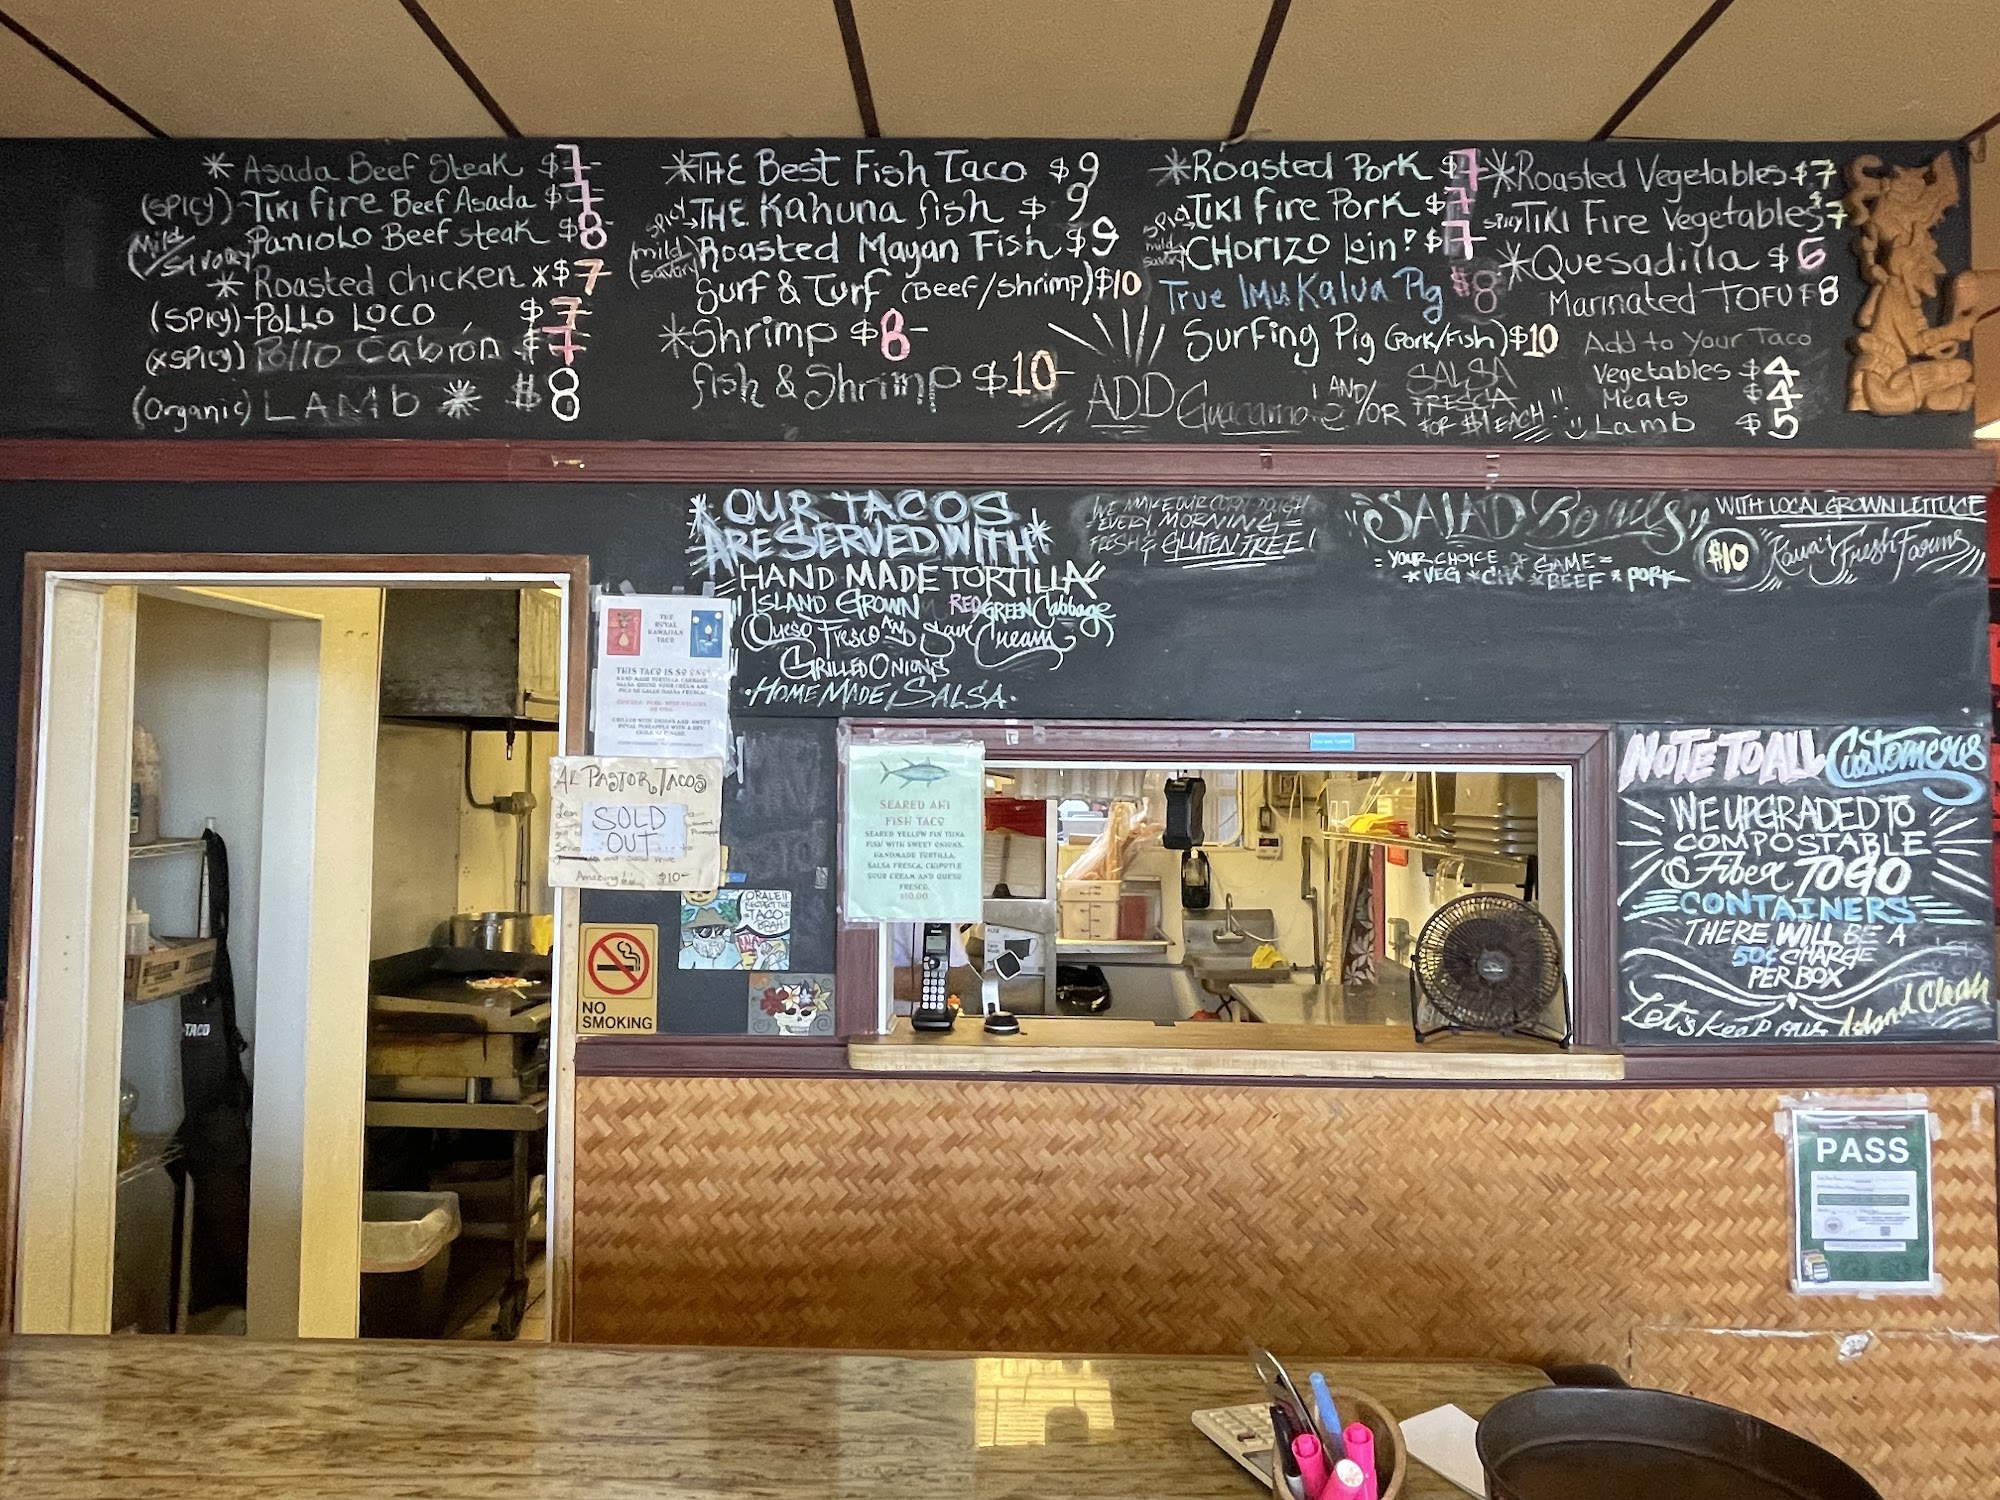 * Asada Beef Steak $7-
(SPICY)-TIKI FIRE Beef Asada $7-
(Mild/SAVORY) PANIOLO Beef steak $8-
* Roasted chicken * $7
(SPICY)-POLLO LOCO $7-
(XSPICY) Pollo Cabrón $7
(Organic) LAMB * $8
*THE Best Fish Taco $9
SPICY→THE Kahuna fish $9
(mild savory) Roasted Mayan Fish $9
Surf & Turf (Beef/Shrimp) $10
*Shrimp $8-
fish & Shrimp $10-
*Roasted Pork $7
SPICY→TIKI Fire Pork $7
mild savory CHORIZO Loin! $7
True Imu Kalua Pig $8
Surfing Pig (Pork/Fish) $10
ADD Guacamole AND/OR SALSA FRESCA
FOR $1 EACH!!
*Roasted Vegetables $7
SPICY TIKI Fire Vegetables $7
*Quesadilla $6
Marinated TOFU $8
Add to Your Taco
Vegetables $4
Meats $4
Lamb $5
*OUR TACOS
ARE SERVED WITH*
HAND MADE TORTILLA
ISLAND GROWN RED GREEN Cabbage
Queso Fresco AND Sour Cream
GRILLED ONIONS
·HOMEMADE SALSA·
WE MAKE OUR CORN DOUGH
=EVERY MORNING=
FRESH & GLUTEN FREE!
"SALAD Bowls"
WITH LOCAL GROWN LETTUCE
= YOUR CHOICE OF GAME =
*VEG *CHX *BEEF *PORK
$10 Kaua'i Fresh Farms
THE
ROYAL
HAWAIIAN
TACO
THIS TACO IS SO ONO!
HAND MADE TORTILLA, CABBAGE,
SALSA, QUESO SOUR CREAM AND
GRILLED WITH ONIONS AND SWEET
AL PASTOR TACOS
SOLD
OUT
and Salsa Verde
Amazing!! $10-
SEARED AHI
FISH TACO
SEARED YELLOW FIN TUNA
FISH WITH SWEET ONIONS,
HANDMADE TORTILLA,
SALSA FRESCA, CHIPOTLE
SOUR CREAM AND QUESO
FRESCO.
$10.00
ORALE!!
RESPECT THE
=TACO=
BRAH!
NO
SMOKING
TACO
NOTE TO ALL Customers
WE UPGRADED TO
COMPOSTABLE
& Fiber TO GO
CONTAINERS
THERE WILL BE A
50¢ CHARGE
PER BOX
Let's keep our Island Clean
PASS